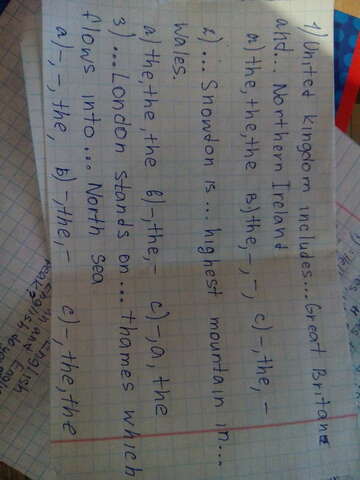 1) United Kingdom includes... Great Britane
and... Northern Ireland
a) the, the, the в) the, -, -, c) -, the, -
2) ... Snowdon is ... highest mountain in ...
Wales.
a) the, the, the в) -, the, - c) -, a, the
3) ... London stands on ... thames which
flows into ... North sea
a) -, -, the, в) -, the, - c) -, the, the